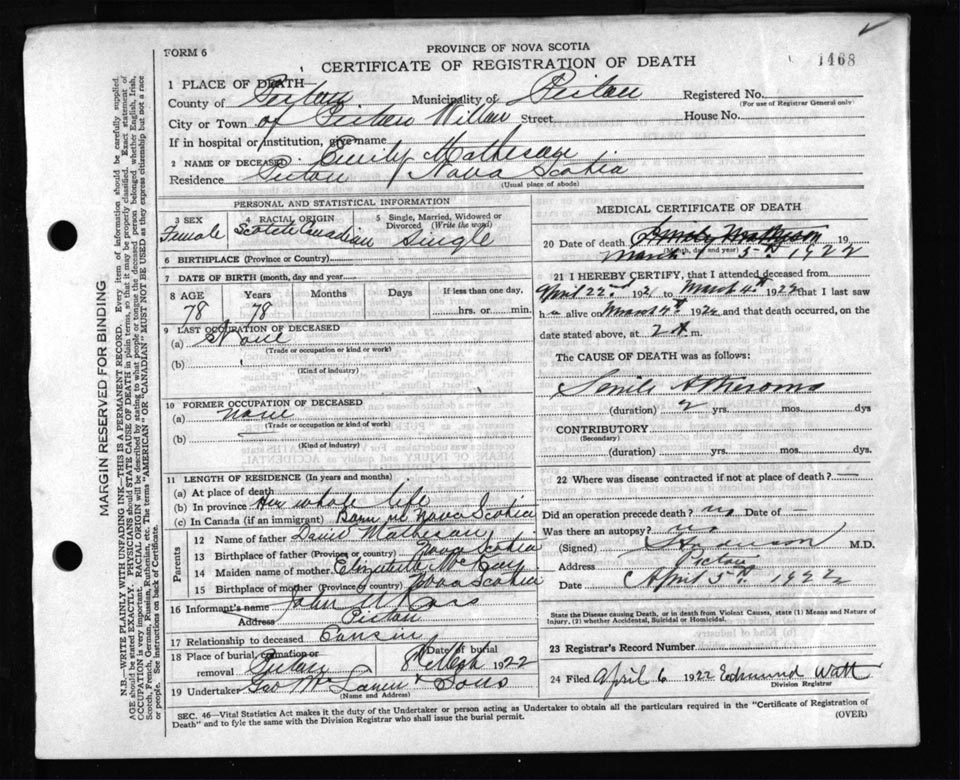 FORM 6
PROVINCE OF NOVA SCOTIA
CERTIFICATE OF REGISTRATION OF DEATH
1468
1 PLACE OF DEATH—
County of Pictou Municipality of Pictou Registered No.
(For use of Registrar General only)
City or Town of Pictou Willow Street House No.
If in hospital or institution, give name
2 NAME OF DECEASED Emily Matheson
Residence Pictou Nova Scotia
(Usual place of abode)
PERSONAL AND STATISTICAL INFORMATION
3 SEX
Female
4 RACIAL ORIGIN
Scotch Canadian
5 Single, Married, Widowed or Divorced (Write the word)
Single
6 BIRTHPLACE (Province or Country)
7 DATE OF BIRTH (month, day and year)
8 AGE Years Months Days If less than one day,
78 78 hrs. or min.
9 LAST OCCUPATION OF DECEASED
(a) None
(Trade or occupation or kind of work)
(b)
(Kind of industry)
10 FORMER OCCUPATION OF DECEASED
(a) none
(Trade or occupation or kind of work)
(b)
(Kind of industry)
11 LENGTH OF RESIDENCE (In years and months)
(a) At place of death
(b) In province Her whole life
(c) In Canada (if an immigrant) Born in Nova Scotia
Parents
12 Name of father David Matheson
13 Birthplace of father (Province or country) Nova Scotia
14 Maiden name of mother Elizabeth
15 Birthplace of mother (Province or country) Nova Scotia
16 Informant's name John Ross
Address Pictou
17 Relationship to deceased Cousin
18 Place of burial, cremation or removal Pictou
Date of burial 8th Mch 1922
19 Undertaker Geo McLaren & Sons
(Name and Address)
MEDICAL CERTIFICATE OF DEATH
20 Date of death Emily Matheson 19
(Month, day and year)
March 5th 1922
21 I HEREBY CERTIFY, that I attended deceased from
April 22nd 1921 to March 4th 1922 that I last saw
h alive on March 4th 1922 and that death occurred, on the
date stated above, at 2 m.
The CAUSE OF DEATH was as follows:
Senile Atheroma
(duration) 2 yrs. mos. dys
CONTRIBUTORY
(Secondary)
(duration) yrs. mos. dys.
22 Where was disease contracted if not at place of death?—
Did an operation precede death? no Date of —
Was there an autopsy? no
(Signed) M.D.
Address Pictou
Date April 5th 1922
State the Disease causing Death, or in death from Violent Causes, state (1) Means and Nature of
Injury, (2) whether Accidental, Suicidal or Homicidal.
23 Registrar's Record Number
24 Filed April 6 1922 Edmund Watt
Division Registrar
SEC. 46—Vital Statistics Act makes it the duty of the Undertaker or person acting as Undertaker to obtain all the particulars required in the "Certificate of Registration of
Death" and to fyle the same with the Division Registrar who shall issue the burial permit.
(OVER)
MARGIN RESERVED FOR BINDING
N.B.—WRITE PLAINLY WITH UNFADING INK—THIS IS A PERMANENT RECORD. Every item of information should be carefully supplied.
AGE should be stated EXACTLY. PHYSICIANS should STATE CAUSE OF DEATH in plain terms, so that it may be properly classified. Exact statement of
OCCUPATION is very important. RACIAL ORIGIN will be described by stating to what people or tongue the deceased person belonged, whether English, Irish,
Scotch, French, German, Russian, Ruthenian, etc. The terms "AMERICAN" OR "CANADIAN" MUST NOT BE USED as they express citizenship but not a race
or people. See instructions on back of Certificate.